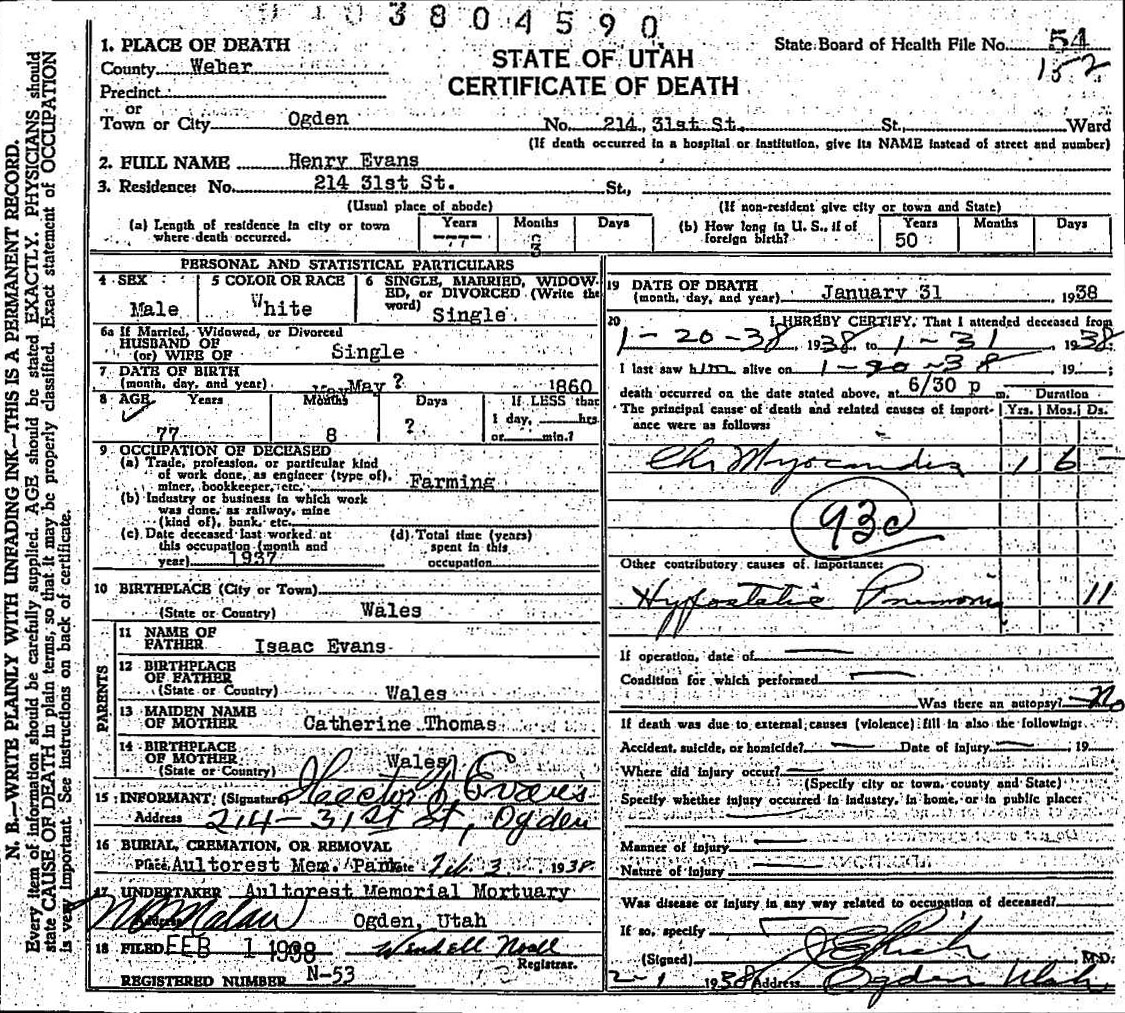 3804590
1. PLACE OF DEATH
STATE OF UTAH
CERTIFICATE OF DEATH
State Board of Health File No. 54
152
County Weber
Precinct
or
Town or City Ogden No. 214, 31st St. St., Ward
(If death occurred in a hospital or institution, give its NAME instead of street and number)
2. FULL NAME Henry Evans
3. Residence: No. 214 31st St. St.,
(Usual place of abode) (If non-resident give city or town and State)
(a) Length of residence in city or town where death occurred. Years Months Days
(b) How long in U. S., if of foreign birth? Years 50 Months Days
PERSONAL AND STATISTICAL PARTICULARS
4 SEX Male
5 COLOR OR RACE White
6 SINGLE, MARRIED, WIDOWED, or DIVORCED (Write the word) Single
6a If Married, Widowed, or Divorced
HUSBAND OF
(or) WIFE OF Single
7 DATE OF BIRTH
(month, day, and year) May ? 1860
8 AGE Years Months Days If LESS than
1 day, hrs.
or min.?
77 8 ?
9 OCCUPATION OF DECEASED
(a) Trade, profession, or particular kind
of work done, as engineer (type of),
miner, bookkeeper, etc. Farming
(b) Industry or business in which work
was done, as railway, mine
(kind of), bank, etc.
(c) Date deceased last worked at
this occupation (month and
year) 1937
(d) Total time (years)
spent in this
occupation
10 BIRTHPLACE (City or Town)
(State or Country) Wales
PARENTS
11 NAME OF
FATHER Isaac Evans
12 BIRTHPLACE
OF FATHER
(State or Country) Wales
13 MAIDEN NAME
OF MOTHER Catherine Thomas
14 BIRTHPLACE
OF MOTHER
(State or Country) Wales
15 INFORMANT (Signature) Hector Evans
Address 214-31st St, Ogden
16 BURIAL, CREMATION, OR REMOVAL
Place Aultorest Mem. Park Date Feb. 3 1938
17 UNDERTAKER Aultorest Memorial Mortuary
Address Ogden, Utah
18 FILED FEB 1 1938 Wendell Noall
Registrar.
REGISTERED NUMBER N-53
19 DATE OF DEATH
(month, day, and year) January 31, 1938
20 I HEREBY CERTIFY, That I attended deceased from
1-20-38 1938 to 1-31, 1938
I last saw him alive on 1-30-38 19 ;
death occurred on the date stated above, at 6/30 p m. Duration
The principal cause of death and related causes of importance were as follows: Yrs. Mos. Ds.
Chr Myocardis 1 6 -
93c
Other contributory causes of importance:
Hypostatic Pnemonia 11
If operation, date of
Condition for which performed
Was there an autopsy? No
If death was due to external causes (violence) fill in also the following:
Accident, suicide, or homicide? Date of injury 19
Where did injury occur?
(Specify city or town, county and State)
Specify whether injury occurred in industry, in home, or in public place:
Manner of injury
Nature of injury
Was disease or injury in any way related to occupation of deceased?
If so, specify
(Signed) M.D.
2-1 1938 Address Ogden Utah
N. B.—WRITE PLAINLY WITH UNFADING INK—THIS IS A PERMANENT RECORD.
Every item of information should be carefully supplied. AGE should be stated EXACTLY. PHYSICIANS should
state CAUSE OF DEATH in plain terms, so that it may be properly classified. Exact statement of OCCUPATION
is very important. See instructions on back of certificate.